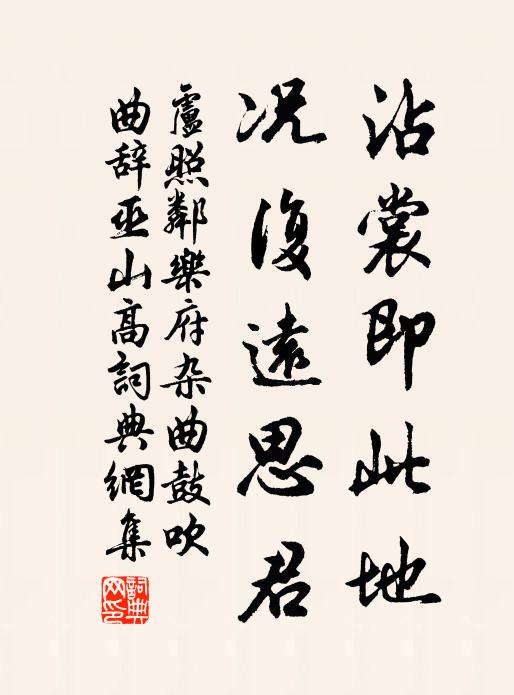 沾裳即此地
况復遠思君
盧照鄰樂府杂曲鼓吹
曲辞巫山高詞典網集
詞典網印